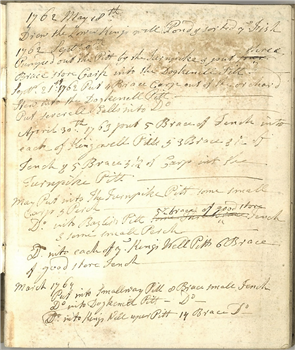 1762 May 18th
Drew the Lower Kings well Pond & sorted ye Fish
1762 Sept
Carryed out the Pitt by the Turnpike & put
Brace store Carp into the Dogkenell Pitt
Sept 21st 1762 Put 4 Brace Carp out of the orchard
Stew into the Dogkenell Pitt
Put severell Eells into Do
April 30th 1763 put 5 Brace of Tench into
each of Kingswell Pitts & 3 Brace of
Tench & 5 Brace of Carp into the
Turnpike Pitt
May Put into the Turnpike Pitt some small
Carps & Perch
Do into Pitt 5 brace of good store Tench
& some small Perch
Do into each of ye Kings Well Pitts 6 Brace
of good store Tench
March 1764
Put into Smallway Pitt 8 Brace small Tench
Do into Dogkenell Pitt - Do -
Do into Kings Well uper Pitt 14 Brace Do